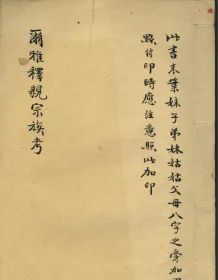 此書末葉妹子弟妹姑姑父母八字之旁加
點付印時應注意照此加印
爾雅釋親宗族考